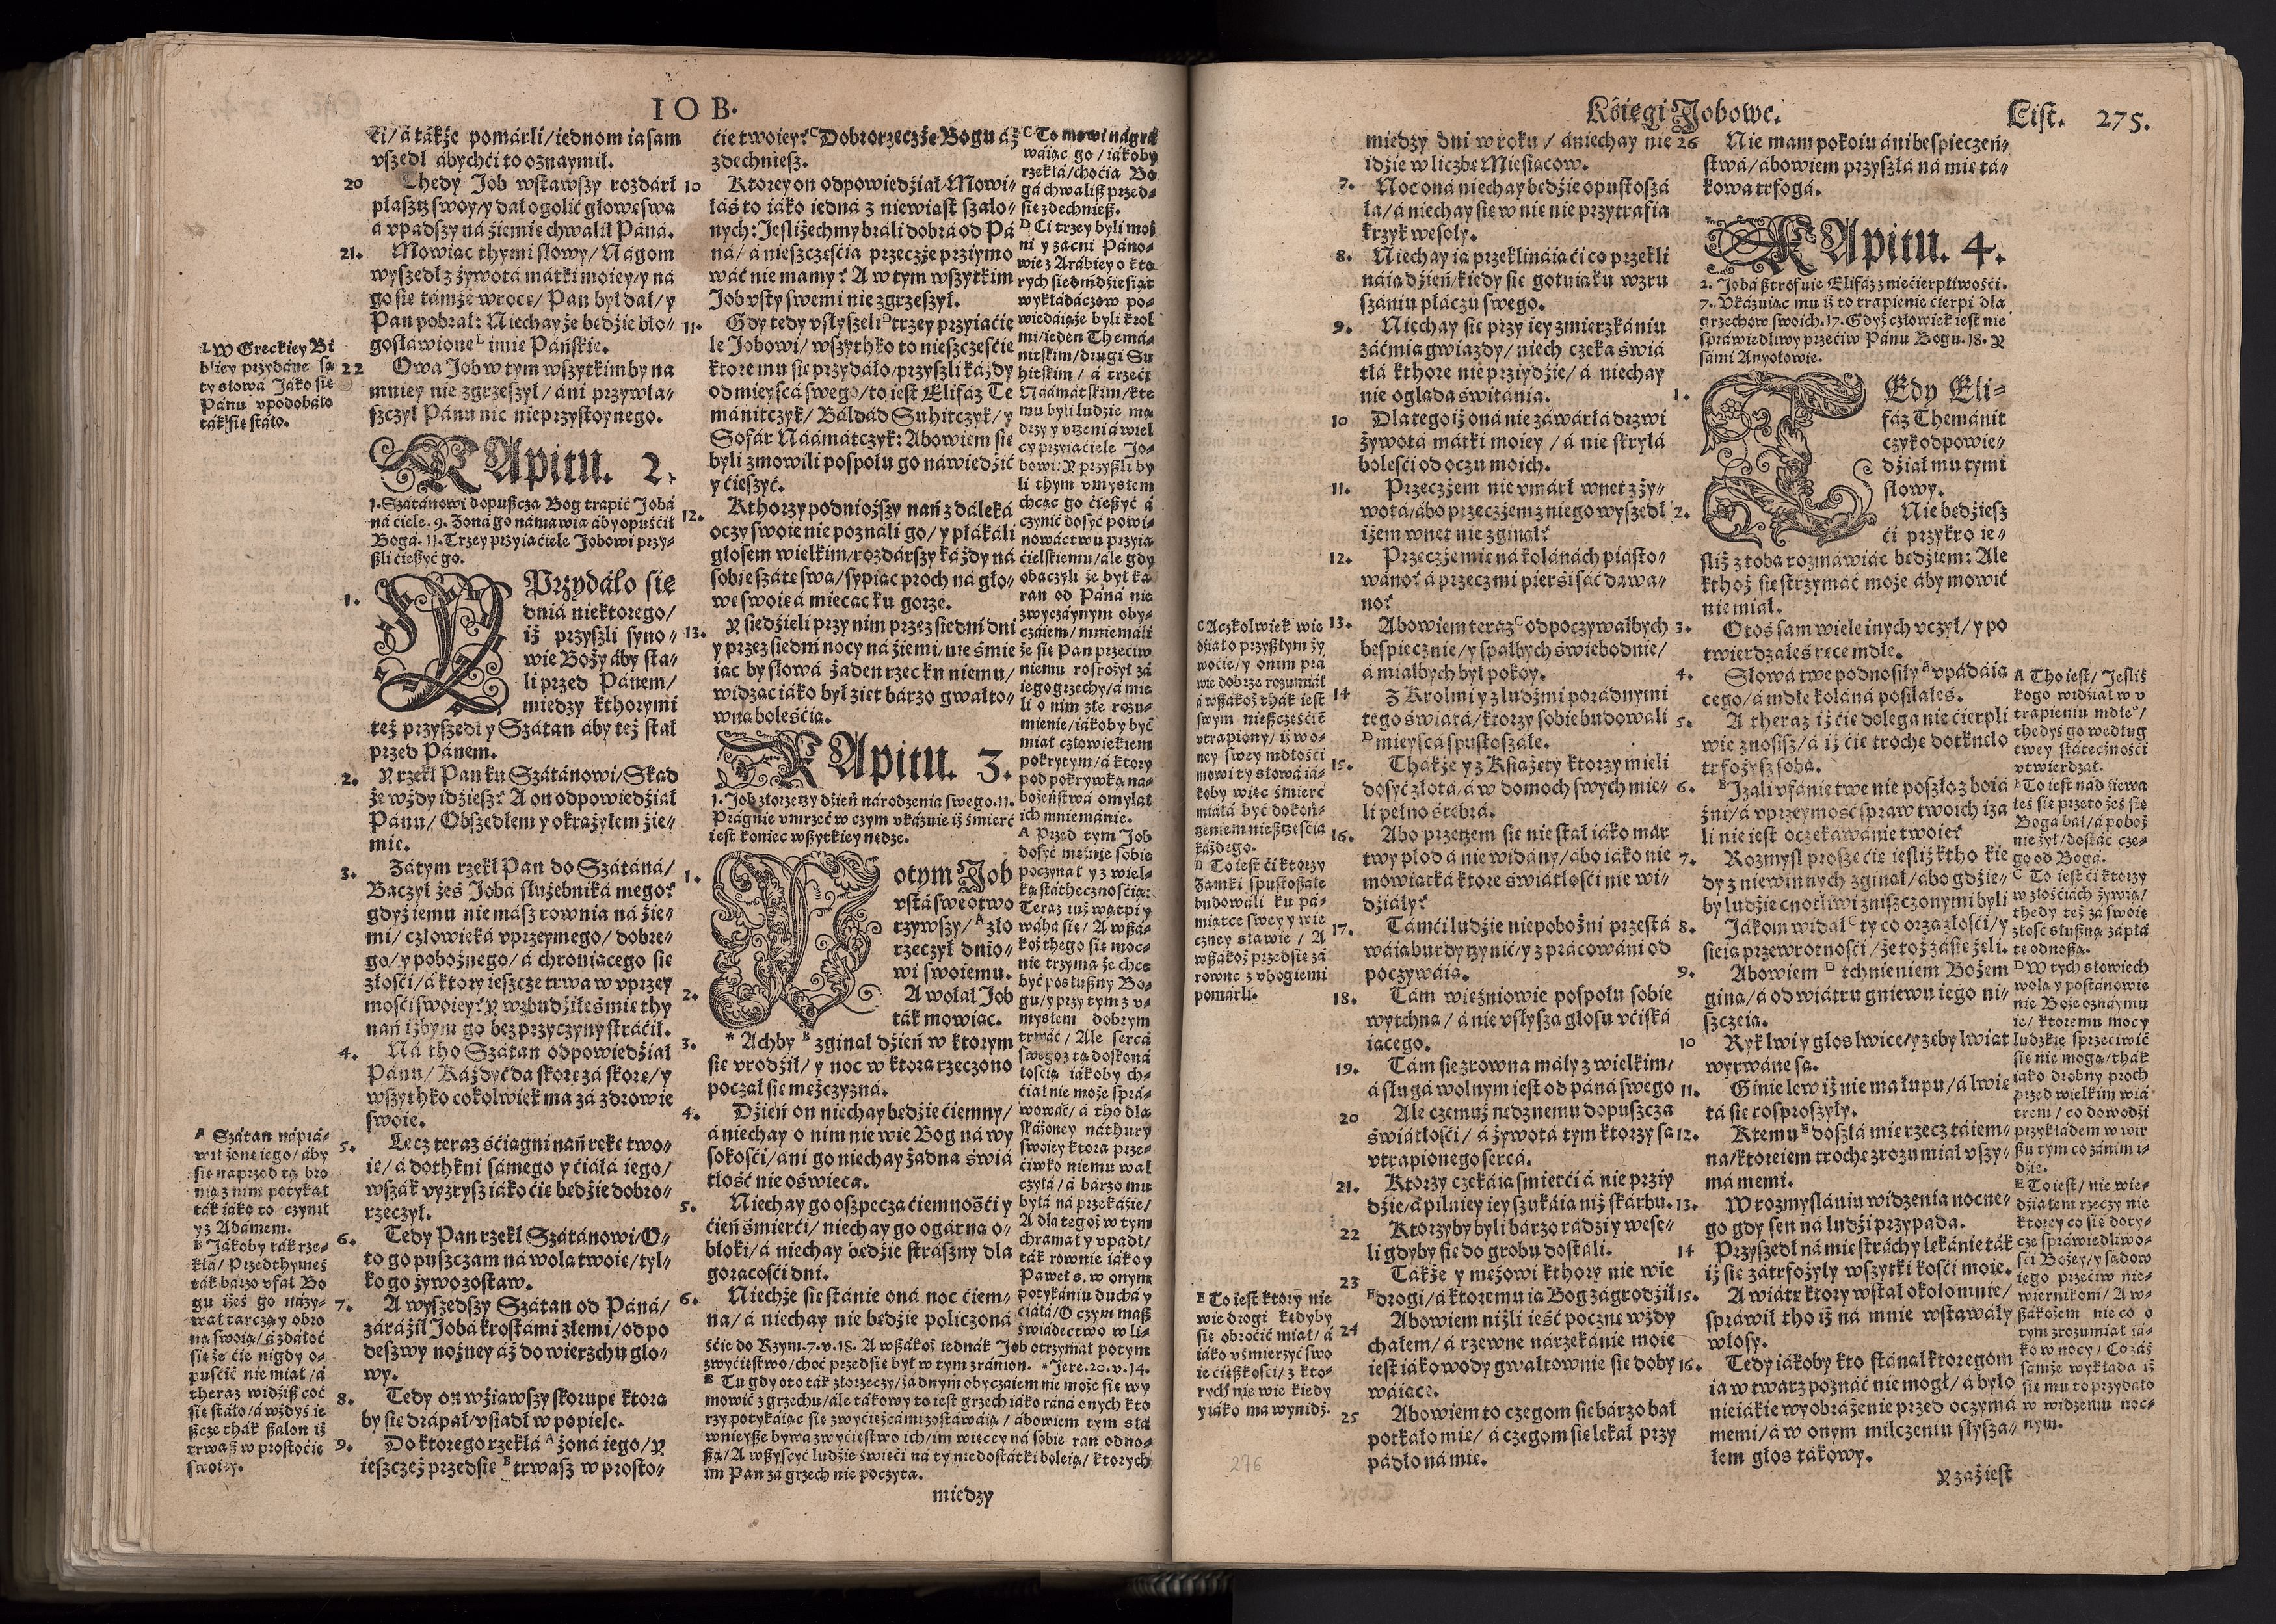 IOB.
ći/ á tákże pomárli/ iednom ia sam
vszedł ábych ći to oznaymił.
20 Thedy Job wstawszy rozdárł
płaszcz swoy/ y dał ogolić głowę swą
á vpadszy ná źiemię chwalił Páná.
21. Mowiąc thymi słowy/ Nágom
wyszedł z żywotá mátki moiey/ y ná
go się támże wrocę/ Pan był dał/ y
Pan pobrał: Niechayże będźie bło-
gosławione L imię Páńskie.
22 Owa Job w tym wszytkim by na
mniey nie zgrzeszył/ áni przywła-
szczył Pánu nic nieprzystoynego.
L W Greckiey Bi
bliey przydáne są
ty słowá Jáko się
Pánu vpodobáło
ták się stáło.
KApitu. 2.
1. Szátánowi dopuszcza Bog trapić Jobá
ná ciele. 9. Zoná go námawia áby opuśćił
Bogá. 11. Trzey przyiaćiele Jobowi przy-
szli ćieszyć go.
1. Przydáło się
dniá niektorego/
iż przyszli syno-
wie Boży áby stá-
li przed Pánem/
miedzy kthorymi
też przyszedł y Szátan áby też stał
przed Pánem.
2. Y rzekł Pan ku Szátánowi/ Skąd
że wżdy idźiesz? A on odpowiedźiał
Pánu/ Obszedłem y okrążyłem źie-
mię.
3. Zátym rzekł Pan do Szátáná/
Baczył żeś Jobá służebniká mego?
gdyż iemu niemász rownia ná źie-
mi/ człowieká vprzeymego/ dobre-
go/ y pobożnego/ á chroniącego się
złośći/ á ktory ieszcze trwa w vprzey
mośći swoiey? Y wzbudźiłeś mię thy
nań iżbym go bez przyczyny stráćił.
4. Ná tho Szátan odpowiedźiał
Pánu/ Káżdyć da skorę zá skorę/ y
wszythko cokolwiek ma zá zdrowie
swoie.
5. Lecz teraz śćiągni nań rękę two-
ię/ á dothkni sámego y ćiáłá iego/
wszák vyzrysz iáko ćie będźie dobro-
rzeczył.
6. Tedy Pan rzekł Szátánowi/ O-
to go puszczam ná wolą twoię/ tyl-
ko go żywo zostaw.
7. A wyszedszy Szátan od Páná/
záráźił Jobá krostámi złemi/ od po
deszwy nożney áż do wierzchu gło-
wy.
8. Tedy on wźiąwszy skorupę ktorą
by się drapał/ vsiadł w popiele.
9. Do ktorego rzekłá A żoná iego/ Y
ieszczeż przedsię B trwasz w prosto-
A Szátan nápra-
wił żonę iego/ áby
się naprzod tą bro
nią z nim potykał
ták iáko to czynił
y z Adámem.
B Jákoby ták rze-
kłá/ Przedthymeś
ták bárzo vfał Bo
gu iżeś go názy-
wał tarczą y obro
ną swoią/ á żdałoć
się że ćie nigdy o-
puśćić nie miał/ á
theraz widźisz coć
się stáło/ á wżdyś ie
szcze thák szalon iż
trwasz w prostoćie
swoiey.
ćie twoiey? C Dobrorzeczże Bogu áż
zdechniesz.
10 Ktorey on odpowiedźiał/ Mowi-
łáś to iáko iedná z niewiast szalo-
nych: Jesliżechmy bráli dobrá od Pá
ná/ á nieszczęśćia przeczże prziymo
wáć nie mamy? A w tym wszytkim
Job vsty swemi nie zgrzeszył.
11. Gdy tedy vsłyszeli D trzey przyiaćie
le Jobowi/ wszythko to nieszczęśćie
ktore mu się przydáło/ przyszli káżdy
od mieyscá swego/ to iest Elifáz Te
mánitczyk/ Báldád Suhitczyk/ y
Sofár Náámátczyk: Abowiem się
byli zmowili pospołu go náwiedźić
y ćieszyć.
12. Kthorzy podniozszy nań z dáleká
oczy swoie nie poználi go/ y płákáli
głosem wielkim/ rozdárszy káżdy ná
sobie szátę swą/ sypiąc proch ná gło-
wę swoię á miecąc ku gorze.
13. Y siedźieli przy nim przez siedm dni
y przez siedm nocy ná źiemi/ nie śmie
iąc by słowá żaden rzec ku niemu/
widząc iáko był zięt bárzo gwałto-
wną boleśćią.
KApitu. 3.
1. Job złorzeczy dźień národzenia swego. 11.
Prágnie vmrzeć w czym vkázuie iż śmierć
iest koniec wszytkiey nędze.
1. Potym Job
vstá swe otwo
rzywszy/ A zło
rzeczył dnio-
wi swoiemu.
2. A wołał Job
ták mowiąc.
3. * Achby B zginął dźień w ktorym
się vrodźił/ y noc w ktorą rzeczono
począł się mężczyzná.
4. Dźień on niechay będźie ćiemny/
á niechay o nim nie wie Bog ná wy
sokośći/ áni go niechay żadna świá
tłość nie oświeca.
5. Niechay go oszpecą ćiemnośći y
ćień śmierći/ niechay go ogárną o-
błoki/ á niechay będźie strászny dla
gorącośći dni.
6. Niechże się stánie oná noc ćiem-
na/ á niechay nie będźie policzoná
śćie do Rzym. 7. v. 18. A wszákoż iednák Job otrzymał potym
zwyćięstwo/ choć przedsię był w tym zránion. * Jere. 20. v. 14.
B Tu gdy oto ták złorzeczy/ żadnym obyczáiem nie może się wy
mowić z grzechu/ ále tákowy to iest grzech iáko ráná onych kto
rzy potykáiąc się zwyćięzcámi zostáwáią/ ábowiem tym sła
wnieysze bywa zwyćięstwo ich/ im więcey ná sobie ran odno-
szą/ A wszyscyć ludźie święći ná ty niedostátki boleią/ ktorych
im Pan zá grzech nie poczyta.
C To mowi nágrá
wáiąc go/ iákoby
rzekłá/ choćia Bo
gá chwalisz przed-
się zdechniesz.
D Ci trzey byli moż
ni y zacni Páno-
wie z Arábiey o kto
rych siedmdźiesiąt
wykłádáczow po-
wiedáią że byli krol
mi/ ieden Themá-
nitskim/ drugi Su
hitskim/ á trzeći
Náámátskim/ kte
mu byli ludźie mą
drzy y vczeni á wiel
cy przyiaćiele Jo-
bowi: Y przyszli by
li thym vmysłem
chcąc go ćieszyć á
czynić dosyć powi-
nowáctwu przyia
ćielskiemu/ ále gdy
obaczyli że był ka
ran od Páná nie
zwyczáynym oby-
czáiem/ mniemáli
że się Pan przećiw
niemu rosrożył zá
iego grzechy/ á mie
li o nim złe rozu-
mienie/ iákoby być
miał człowiekiem
pokrytym/ á ktory
pod pokrywką na-
bożeństwá omylał
ich mniemánie.
A Przed tym Job
dosyć mężnie sobie
poczynał y z wiel-
ką státhecznośćią:
Teraz iuż wątpi y
waha się/ A wszá-
koż thego się moc-
nie trzyma że chce
być posłuszny Bo-
gu/ y przy tym z v-
mysłem dobrym
trwáć/ Ale sercá
swego z tą doskoná
łośćią iákoby ch-
ćiał nie może sprá-
wowáć/ á tho dla
skáżoney náthury
swoiey ktora prze-
ćiwko niemu wal
czyłá/ á bárzo mu
byłá ná przekáźie/
A dla tegoż w tym
chramał y vpadł/
ták rownie iáko y
Páweł s. w onym
potykániu duchá y
ćiáłá/ O czym masz
świádectwo w li-
miedzy
Kśięgi Jobowe. List. 275.
miedzy dni w roku/ á niechay nie
idźie w liczbę Mieśiącow.
7. Noc oná niechay będźie opustoszá
ła/ á niechay się w nię nie przytrafia
krzyk wesoły.
8. Niechay ią przeklináią ći co przekli
náią dźień/ kiedy się gotuią ku wzru
szániu płáczu swego.
9. Niechay się przy iey zmierzkániu
záćmią gwiazdy/ niech czeka świá
tłá kthore nie prziydźie/ á niechay
nie ogląda świtánia.
10 Dla tego iż oná nie záwárłá drzwi
żywotá mátki moiey/ á nie skryłá
boleśći od oczu moich.
11. Przeczżem nie vmárł wnet z ży-
wotá/ ábo przeczżem z niego wyszedł
iżem wnet nie zginął?
12. Przeczże mię ná kolánách piásto-
wáno? á przecz mi pierśi ssáć dawa-
no?
13. Abowiem teraz C odpoczywałbych
bespiecznie/ y spałbych świebodnie/
á miałbych był pokoy.
14 Z Krolmi y z ludźmi porádnymi
tego świátá/ ktorzy sobie budowáli
D mieyscá spustoszáłe.
15. Thákże y z Kśiążęty ktorzy mieli
dosyć złotá/ á w domoch swych mie-
li pełno śrebrá.
16. Abo przeczem się nie stał iáko már
twy płod á nie widány/ ábo iáko nie
mowiątká ktore świátłośći nie wi-
dźiáły?
17. Támći ludźie niepobożni przestá
wáią burdy czynić/ y z prácowáni od
poczywáią.
18. Tám więźniowie pospołu sobie
wytchną/ á nie vsłyszą głosu vćiská
iącego.
19. Tám się zrowna máły z wielkim/
á sługá wolnym iest od páná swego
20 Ale czemuż nędznemu dopuszcza
świátłośći/ á żywotá tym ktorzy są
vtrapionego sercá.
21. Ktorzy czekáią śmierći á nie przy
dźie/ á pilniey iey szukáią niż skárbu.
22 Ktorzyby byli bárzo rádźi y wese-
li gdyby się do grobu dostáli.
23 Tákże y mężowi kthory nie wie
E drogi/ á ktoremu ią Bog zágrodźił
24 Abowiem niżli ieść pocznę wżdy
chałem/ á rzewne nárzekánie moie
iest iáko wody gwałtownie się doby
wáiące.
25 Abowiem to czegom się bárzo bał
potkáło mię/ á czegom się lękał przy
pádło ná mię.
C Aczkolwiek wie
dźiał o przyszłym ży
woćie/ y o nim prá
wie dobrze rozumiał
á wszákoż thák iest
swym nieszczęśćiē
vtrapiony/ iż wo-
ney swey mdłośći
mowi ty słowá iá-
koby więc śmierć
miáłá być dokoń-
czeniem nieszczęśćia
káżdego.
D To iest ći ktorzy
Zamki spustoszáłe
budowáli ku pá-
miątce swey y wie
czney sławie/ A
wszákoż przedsię zá
rowne z vbogiemi
pomárli.
E To iest ktory nie
wie drogi kędyby
się obroćić miał/ á
iáko vśmierzyć swo
ie ćięszkośći/ z kto-
rych nie wie kiedy
y iáko ma wynidź.
26 Nie mam pokoiu áni bespieczeń-
stwá/ ábowiem przyszłá ná mię tá-
kowa trfogá.
KApitu. 4.
2. Jobá sztrofuie Elifáz z niećierpliwośći.
7. Vkázuiąc mu iż to trapienie ćierpi dla
grzechow swoich. 17. Gdyż człowiek iest nie
spráwiedliwy przećiw Pánu Bogu. 18. Y
sámi Anyołowie.
1. TEdy Eli-
fáz Themánit
czyk odpowie-
dźiał mu tymi
słowy.
2. Nie będźiesz
ći przykro ie-
sliż z tobą rozmawiáć będźiem: Ale
kthoż się strzymáć może áby mowić
nie miał.
3. Otoś sam wiele inych vczył/ y po
twierdzałeś ręce mdłe.
4. Słowá twe podnośiły A vpádáią
cego/ á mdłe koláná pośilałeś.
5. A theraz iż ćie dolega nie ćierpli
wie znośisz/ á iż ćie trochę dotknęło
trfożysz sobą.
6. B Izali vfánie twe nie poszło z boiá
źni/ á vprzeymość spraw twoich iza
li nie iest oczekáwánie twoie?
7. Rozmysl proszę ćie iesliż ktho kie
dy z niewinnych zginął/ ábo gdźie-
by ludźie cnotliwi zniszczonymi byli
8. Jákom widał C ty co orzą złośći/ y
śieią przewrotnośći/ że toż záśię żęli.
9. Abowiem D tchnieniem Bożem
giną/ á od wiátru gniewu iego ni-
szczeią.
10 Ryk lwi y głos lwice/ y zęby lwiąt
wyrwáne są.
11. Ginie lew iż nie ma łupu/ á lwię
tá się rosproszyły.
12. Ktemu E doszłá mię rzecz táiem-
na/ ktoreiem trochę zrozumiał vszy-
má memi.
13. W rozmyslániu widzenia nocne-
go gdy sen ná ludźi przypada.
14 Przyszedł ná mię strách y lękánie ták
iż się zátrfożyły wszytki kośći moie.
15. A wiátr ktory wstał około mnie/
spráwił tho iż ná mnie wstawáły
włosy.
16. Tedy iákoby kto stánął ktoregom
ia w twarz poznáć nie mogł/ á było
nieiákie wyobráżenie przed oczymá
memi/ á w onym milczeniu słysza-
łem głos tákowy.
A Tho iest/ Jesliś
kogo widźiał w v
trapieniu mdłeᵒ/
thedyś go według
twey státecznośći
vtwierdzał.
B To iest nádźiewa
łeś się przeto żeś się
Bogá bał/ á poboż
nie żył/ dostáć cze-
go od Bogá.
C To iest ći ktorzy
w złośćiách żywią/
thedy też zá swoię
złość słuszną zápłá
tę odnoszą.
D W tych słowiech
wolą y postánowie
nie Boże oznáymu
ie/ ktoremu mocy
ludzkie sprzećiwić
się nie mogą/ thák
iáko drobny proch
przed wielkim wiá
trem/ co dowodźi
przykłádem w wir
szu tym co zánim i-
dźie.
E To iest/ nie wie-
dźiałem rzeczy nie
ktorey co się doty-
cze spráwiedliwo-
śći Bożey/ y sądow
iego przećiw nie-
wiernikom/ A w-
szákożem nieco o
tym zrozumiał iá-
ko w nocy/ Co záś
samże wykłáda iż
się mu to przydáło
w widzeniu noc-
nym.
Y zaż iest
276